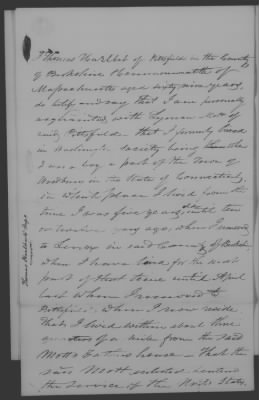 I Thomas Hurlbut of Pittsfield in the County
of Berkshire & Commonwealth of
Massachusetts aged sixty nine years,
do testify and say that I am personally
acquainted with Lyman Mott of
said Pittsfield that I formerly lived
in society being then
I was a boy a part of the Town of
in the State of Connecticut,
in which place I lived from the
time I was five years old until ten
or twelve years ago, when I removed
to Lenox in said County of Berkshire
where I have lived for the most
part of that time until April
last when I removed to
Pittsfield where I now reside
that I lived within about three
quarters of a mile from the said
Mott's father's house – that the
said Mott enlisted entered
the service of the United States,
Thomas Hurlbut